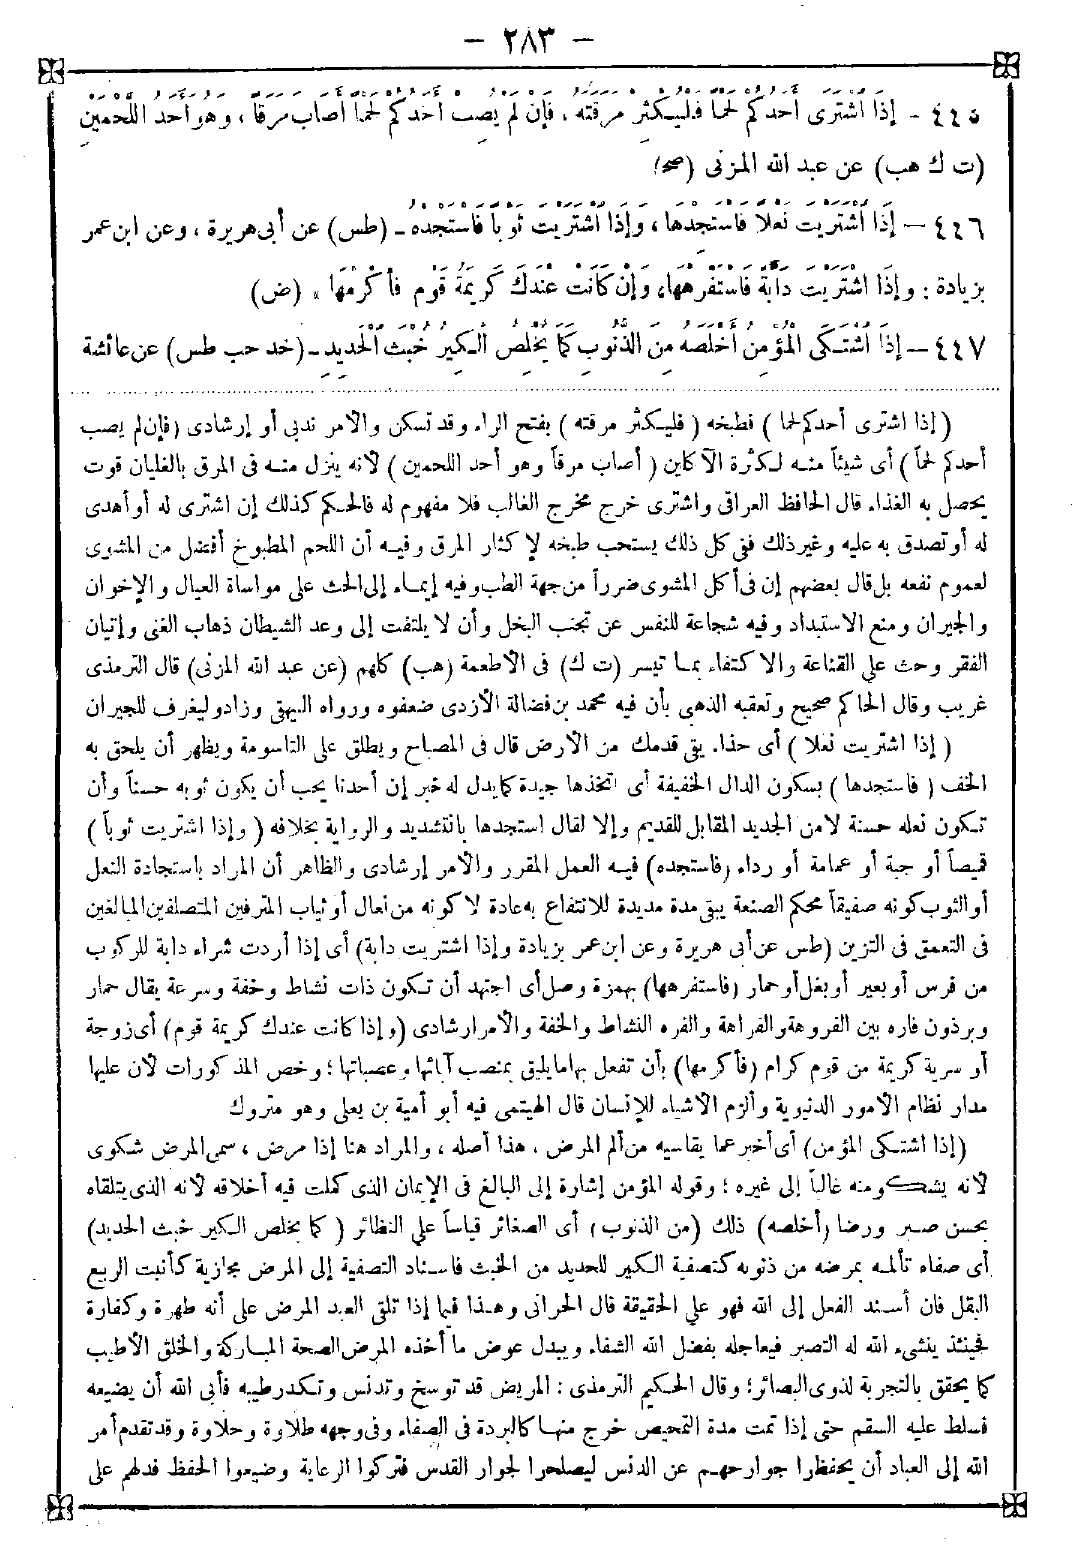 — ٢٨٣ —
٤٤٥ - إِذَا اشْتَرَى أَحَدُكُمْ لَحْمًا فَلْيُكْثِرْ مَرَقَتَهُ ، فَإِنْ لَمْ يُصِبْ أَحَدُكُمْ لَحْمًا أَصَابَ مَرَقًا ، وَهُوَ أَحَدُ اللَّحْمَيْنِ
(ت ك هب) عن عبد الله المزنى (صح)
٤٤٦ — إِذَا اشْتَرَيْتَ نَعْلًا فَاسْتَجِدْهَا ، وَإِذَا اشْتَرَيْتَ ثَوْبًا فَاسْتَجِدْهُ - (طس) عن أبى هريرة ، وعن ابن عمر
بزيادة : وَإِذَا اشْتَرَيْتَ دَابَّةً فَاسْتَفْرِهْهَا، وَإِنْ كَانَتْ عِنْدَكَ كَرِيمَةُ قَوْمٍ فَأَكْرِمْهَا ، (ض)
٤٤٧ — إِذَا اشْتَكَى الْمُؤْمِنُ أَخْلَصَهُ مِنَ الذُّنُوبِ كَمَا يُخْلِصُ الْكِيرُ خَبَثَ الْحَدِيدِ - (خد حب طس) عن عائشة
(إذا اشترى أحدكم لحما) فطبخه (فليكثر مرقته) بفتح الراء وقد تسكن والأمر ندبى أو إرشادى (فإن لم يصب
أحدكم لحماً) أى شيئاً منه لكثرة الآكلين (أصاب مرقاً وهو أحد اللحمين) لأنه ينزل منه فى المرق بالغليان قوت
يحصل به الغذاء قال الحافظ العراقى واشترى خرج مخرج الغالب فلا مفهوم له فالحكم كذلك إن اشترى له أو أهدى
له أو تصدق به عليه وغير ذلك ففى كل ذلك يستحب طبخه لإكثار المرق وفيه أن اللحم المطبوخ أفضل من المشوى
لعموم نفعه بل قال بعضهم إن فى أكل المشوى ضرراً من جهة الطب وفيه إيماء إلى الحث على مواساة العيال والإخوان
والجيران ومنع الاستبداد وفيه شجاعة للنفس عن تجنب البخل وأن لا يلتفت إلى وعد الشيطان ذهاب الغنى وإتيان
الفقر وحث على القناعة والاكتفاء بما تيسر (ت ك) فى الأطعمة (هب) كلهم (عن عبد الله المزنى) قال الترمذى
غريب وقال الحاكم صحيح وتعقبه الذهبى بأن فيه محمد بن فضالة الأزدى ضعفوه ورواه البيهقى وزاد وليغرف للجيران
(إذا اشتريت نعلا) أى حذاء يقى قدمك من الأرض قال فى المصباح ويطلق على التاسومة ويظهر أن يلحق به
الخف (فاستجدها) بسكون الدال الخفيفة أى اتخذها جيدة كما يدل له خبر إن أحدنا يحب أن يكون ثوبه حسناً وأن
تكون نعله حسنة لا من الجديد المقابل للقديم وإلا لقال استجدها بالتشديد والرواية بخلافه (وإذا اشتريت ثوباً)
قميصاً أو جبة أو عمامة أو رداء (فاستجده) فيه العمل المقرر والأمر إرشادى والظاهر أن المراد باستجادة النعل
أو الثوب كونه صفيقاً محكم الصنعة يبقى مدة مديدة للانتفاع به عادة لا كونه من نعال أو ثياب المترفين المتصلفين المبالغين
فى التعمق فى التزين (طس عن أبى هريرة وعن ابن عمر بزيادة وإذا اشتريت دابة) أى إذا أردت شراء دابة للركوب
من فرس أو بعير أو بغل أو حمار (فاستفرهها) بهمزة وصل أى اجتهد أن تكون ذات نشاط وخفة وسرعة يقال حمار
وبرذون فاره بين الفروهة والفراهة والفره النشاط والخفة والأمر ارشادى (وإذا كانت عندك كريمة قوم) أى زوجة
أو سرية كريمة من قوم كرام (فأكرمها) بأن تفعل بها ما يليق بمنصب آبائها وعصباتها ؛ وخص المذكورات لأن عليها
مدار نظام الأمور الدنيوية وألزم الأشياء للإنسان قال الهيتمى فيه أبو أمية بن يعلى وهو متروك
(إذا اشتكى المؤمن) أى أخبر عما يقاسيه من ألم المرض ، هذا أصله ، والمراد هنا إذا مرض ، سمى المرض شكوى
لأنه يشكو منه غالباً إلى غيره ؛ وقوله المؤمن إشارة إلى البالغ فى الإيمان الذى كملت فيه أخلاقه لأنه الذى يتلقاه
بحسن صبر ورضا (أخلصه) ذلك (من الذنوب) أى الصغائر قياساً على النظائر (كما يخلص الكير خبث الحديد)
أى صفاء تألمه بمرضه من ذنوبه كتصفية الكير للحديد من الخبث فاسناد التصفية إلى المرض مجازية كأنبت الربيع
البقل فان أسند الفعل إلى الله فهو على الحقيقة قال الحرانى وهذا فيما إذا تلقى العبد المرض على أنه طهرة وكفارة
فحينئذ ينشىء الله له التصبر فيعاجله بفضل الله الشفاء ويبدل عوض ما أخذه المرض الصحة المباركة والخلق الأطيب
كما يحقق بالتجربة لذوى البصائر؛ وقال الحكيم الترمذى : المريض قد توسخ وتدنس وتكدر طيبه فأبى الله أن يضيعه
فسلط عليه السقم حتى إذا تمت مدة التمحيص خرج منها كالبردة فى الصفاء وفى وجهه طلاوة وحلاوة وقد تقدم أمر
الله إلى العباد أن يحفظوا جوارحهم عن الدنس ليصلحوا لجوار القدس فتركوا الرعاية وضيعوا الحفظ فدلهم على